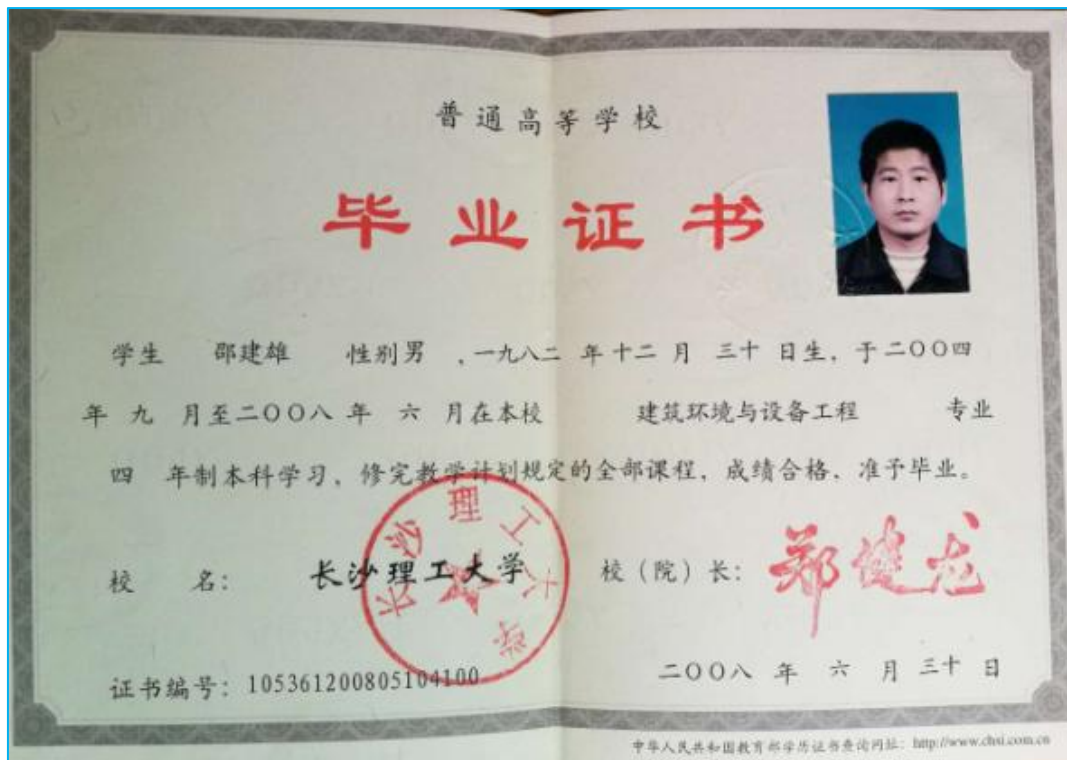 普通高等学校
毕业证书
学生 邵建雄 性别男 ,一九八二 年十二 月 三十 日生, 于二〇〇四
年 九 月至二〇〇八 年 六 月在本校 建筑环境与设备工程 专业
四 年制本科学习, 修完教学计划规定的全部课程, 成绩合格, 准予毕业。
校 名: 长沙理工大学 校(院)长: 郑健龙
长沙理工大学
证书编号: 105361200805104100 二〇〇八 年 六 月 三十 日
中华人民共和国教育部学历证书查询网址: http://www.chsi.com.cn